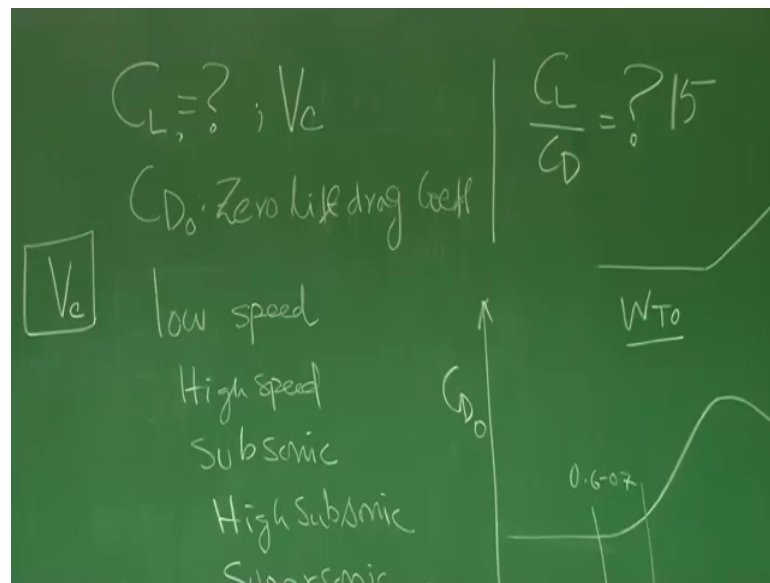 C_L, =? ; V_C
C_L / C_D = ? 15
C_D0 : Zero Lift drag Coeff
V_c
low speed
High speed
subsonic
High Subsonic
Supersonic
W_TO
C_D0
0.6-07